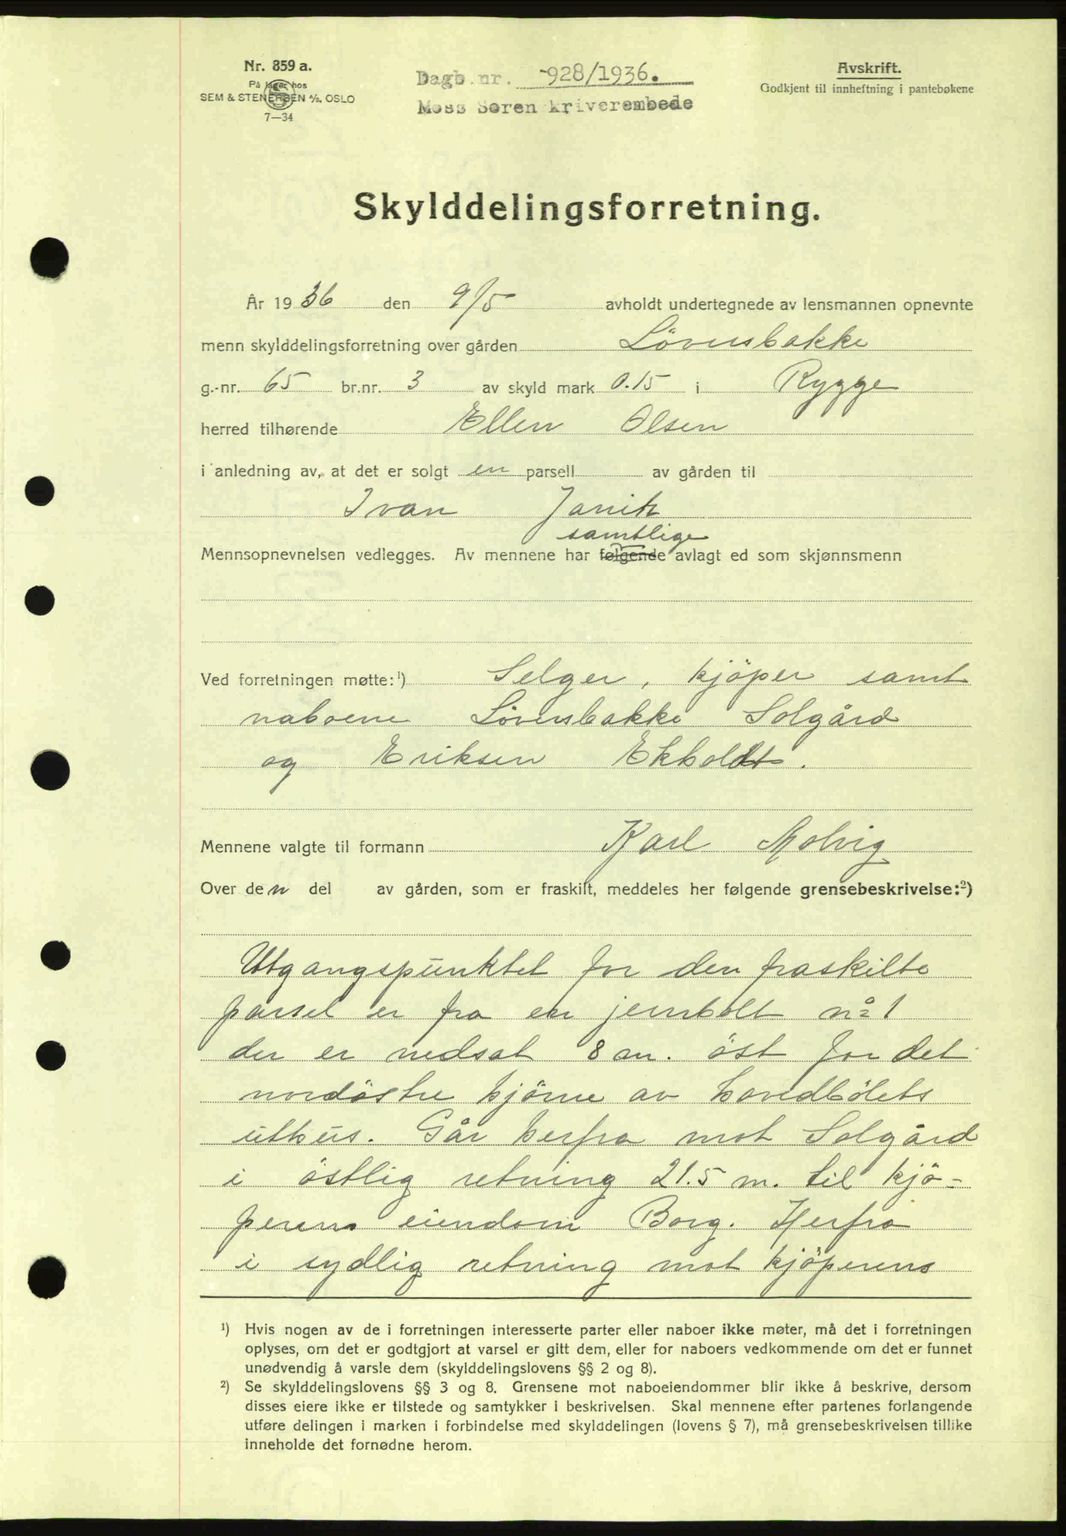 Nr. 859 a.
På lager hos
SEM & STENERSEN A/S. OSLO
7—34
Dagb.nr. 928/1936.
Moss Søren kriverembede
Avskrift.
Godkjent til innheftning i pantebøkene
Skylddelingsforretning.
År 1936 den 9/5 avholdt undertegnede av lensmannen opnevnte
menn skylddelingsforretning over gården Löversbakke
g.-nr. 65 br.nr. 3 av skyld mark 0.15 i Rygge
herred tilhørende Ellen Olsen
i anledning av, at det er solgt en parsell av gården til
Ivan Janitz
samtlige
Mennsopnevnelsen vedlegges. Av mennene har følgende avlagt ed som skjønnsmenn
Ved forretningen møtte:¹) Selger, kjöper samt
naboene Löversbakke Solgård
og Eriksen Ekholdt.
Mennene valgte til formann Karl Molvig
Over den del av gården, som er fraskilt, meddeles her følgende grensebeskrivelse:²)
Utgangspunktet for den fraskilte
parsel er fra en jernbolt nº 1
der er nedsat 8 m. öst for det
nordöstre hjörne av hovedbölets
uthus. Går herfra mot Solgård
i östlig retning 21.5 m. til kjö-
perens eiendom Borg. Herfra
i sydlig retning mot kjöperens
¹) Hvis nogen av de i forretningen interesserte parter eller naboer ikke møter, må det i forretningen
oplyses, om det er godtgjort at varsel er gitt dem, eller for naboers vedkommende om det er funnet
unødvendig å varsle dem (skylddelingslovens §§ 2 og 8).
²) Se skylddelingslovens §§ 3 og 8. Grensene mot naboeiendommer blir ikke å beskrive, dersom
disses eiere ikke er tilstede og samtykker i beskrivelsen. Skal mennene efter partenes forlangende
utføre delingen i marken i forbindelse med skylddelingen (lovens § 7), må grensebeskrivelsen tillike
inneholde det fornødne herom.